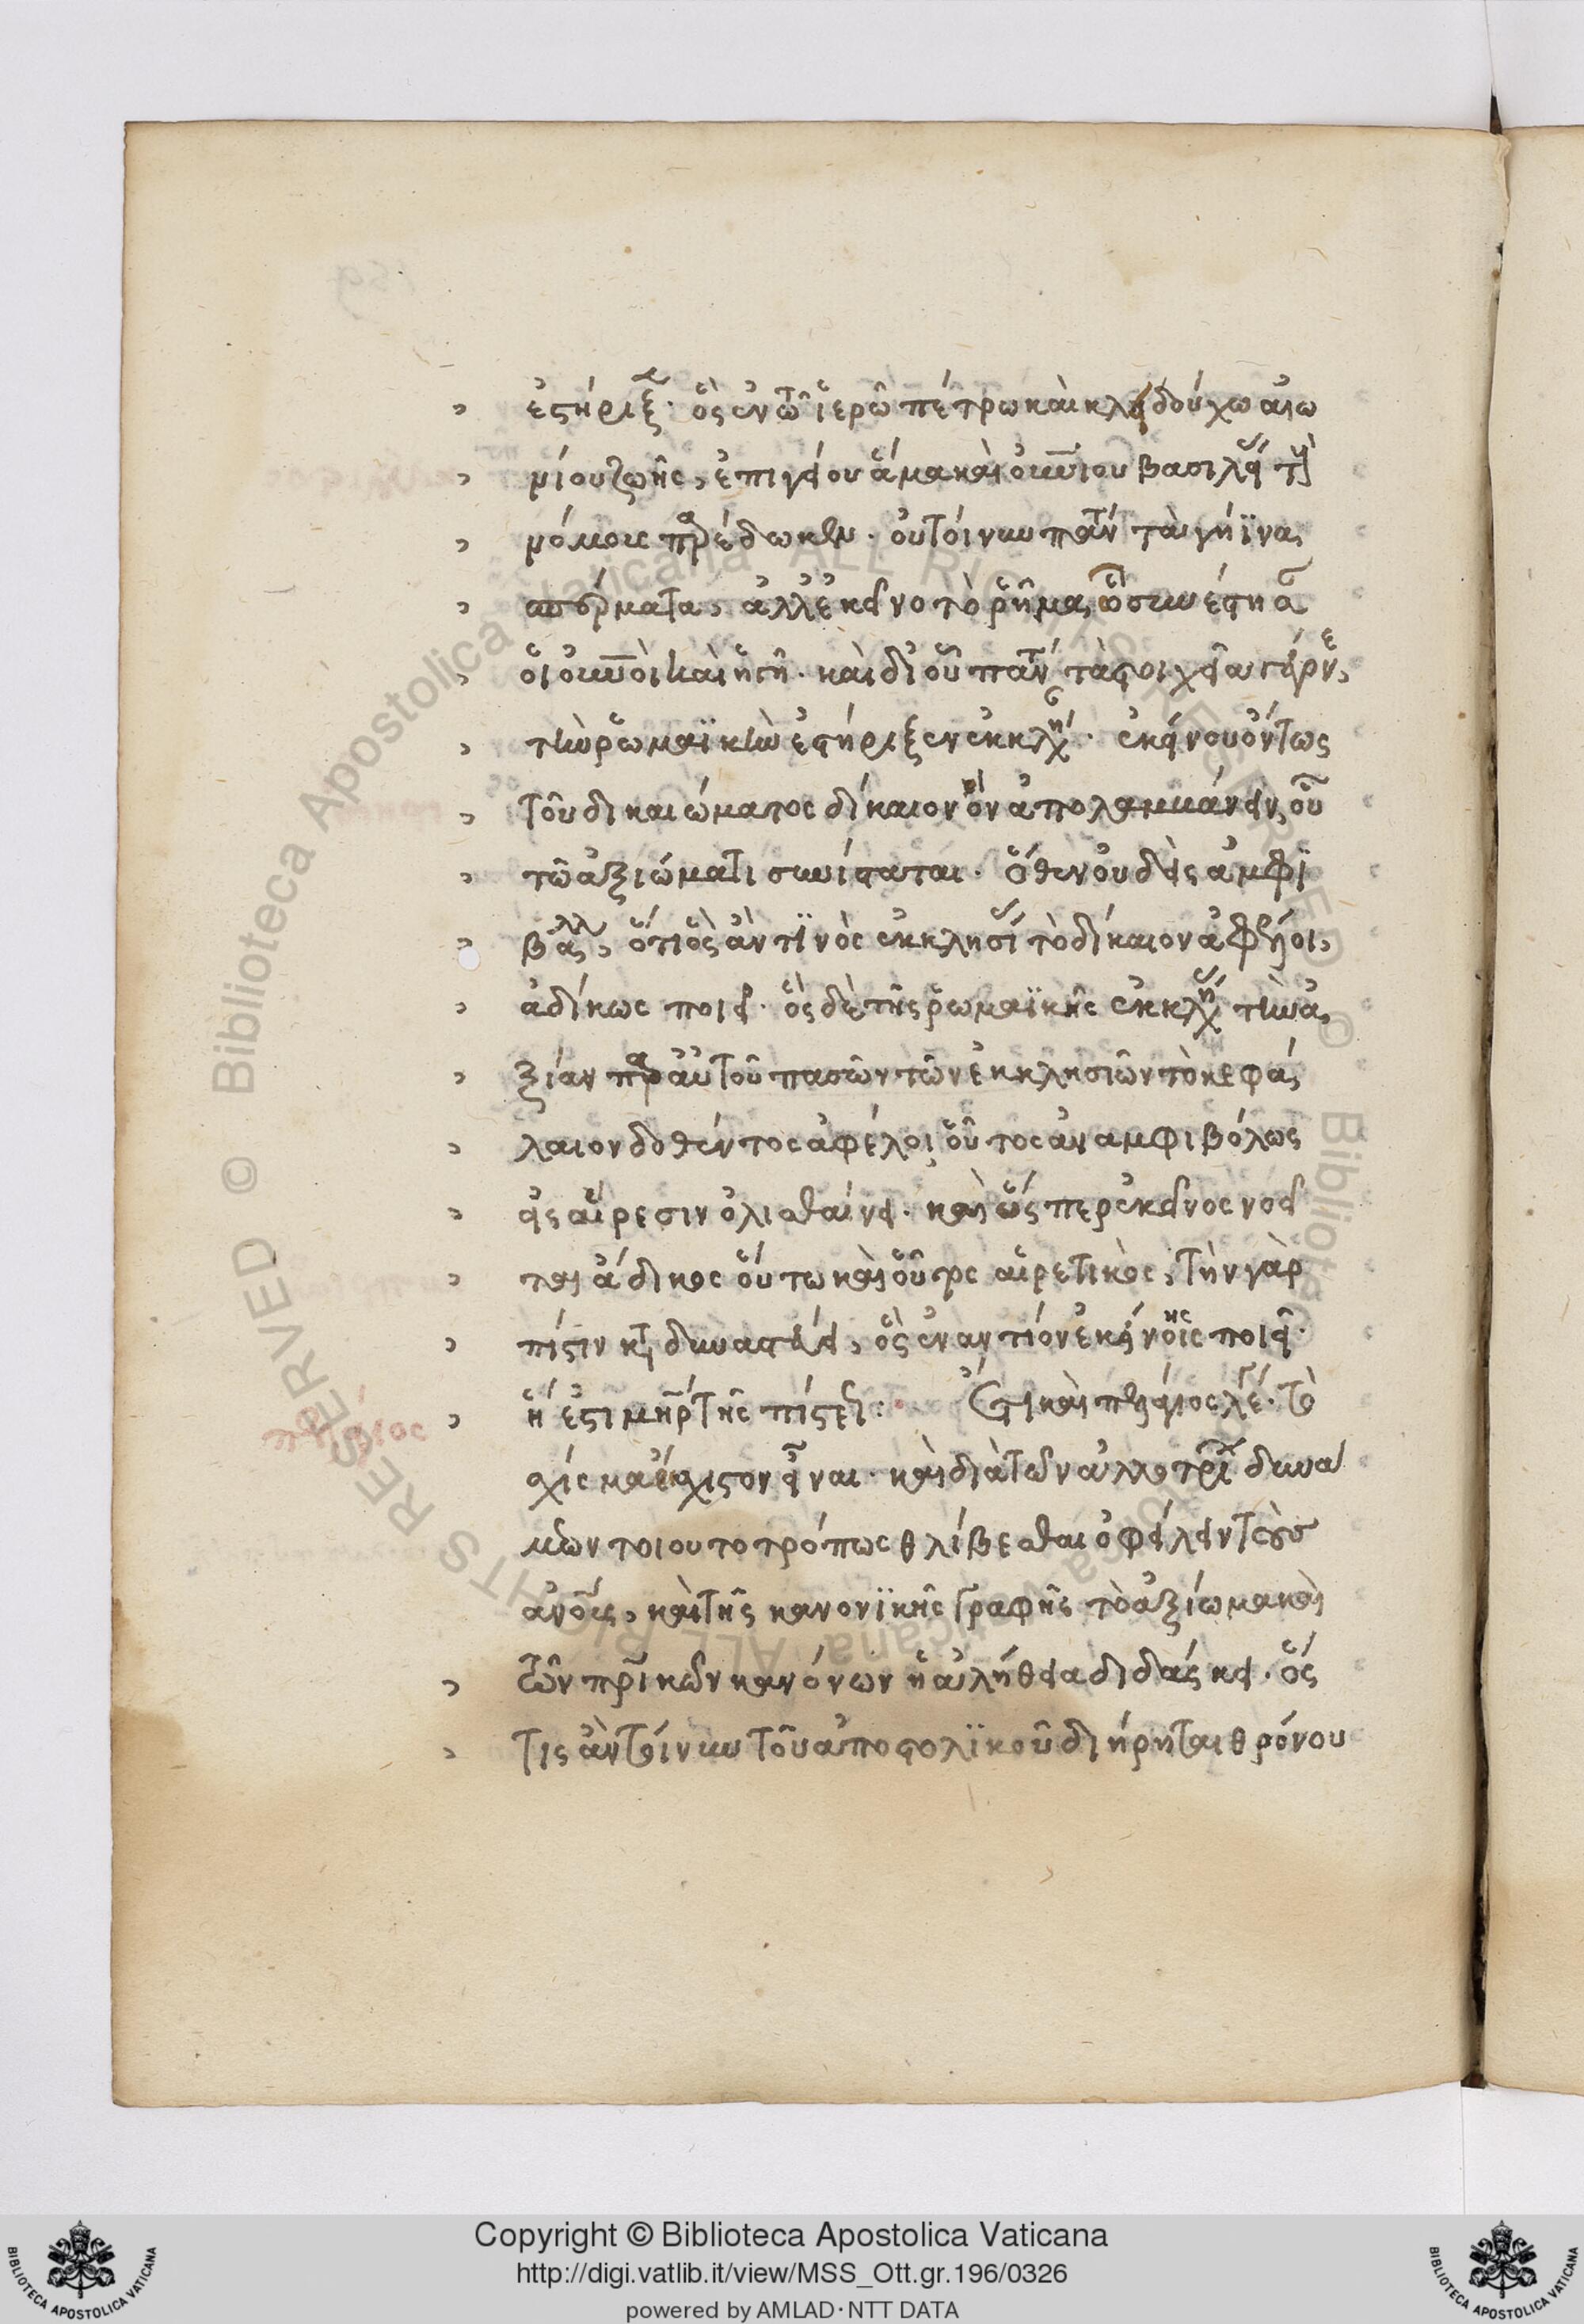 ἐστήριξε· ὃς ἐν τῷ ἱερῷ πέτρῳ καὶ κλειδούχῳ αἰω
νίου ζωῆς, ἐπιγείου ἅμα καὶ οὐνίου βασιλείας τοὺς
νόμους παρέδωκεν. οὔτοίνυν πάντα γήινα
ἀλλ' ἐκεῖνο τὸ ῥῆμα, ᾧ συνέστησαν
οἱ οὐνοὶ καὶ ἡ γῆ. καὶ δι' οὗ πάντα τὰ στοιχεῖα γέγονε,
τὴν ῥωμαϊκὴν ἐστήριξεν ἐκκλησίαν. ἐκείνου ὄντως
τοῦ δικαιώματος δίκαιον ὂν ἀπολαμβάνειν, οὗ
τῷ ἀξιώματι συνίσταται. ὅθεν οὐδεὶς ἀμφι
βάλλει, ὅτι ὃς ἄν τινος ἐκκλησίας τὸ δίκαιον ἀφέλοι,
ἀδίκως ποιεῖ. ὃς δὲ τῆς ῥωμαϊκῆς ἐκκλησίας τὴν ἀ
ξίαν παρ' αὐτοῦ πασῶν τῶν ἐκκλησιῶν τὸ κεφά
λαιον δοθέντος ἀφέλοι, οὗτος ἀναμφιβόλως
εἰς αἵρεσιν ὀλισθαίνει. καὶ ὥσπερ ἐκεῖνος νοεῖ
ται ἄδικος οὕτω καὶ οὗτος αἱρετικός, τὴν γὰρ
πίστιν καταδυναστεύει, ὃς ἐναντίον ἐκείνης ποιεῖ.
ἥ ἐστι μήτηρ τῆς πίστεως: Ἔτι καὶ πελάγιος λέγει. τὸ
πελάγιος
σχίσμα αἴσχιστον εἶναι. καὶ διὰ τῶν ἀλλοτρίων δυνά
μεων τοιουτοτρόπως θλίβεσθαι ὀφείλειν τοὺς
ἀνους, καὶ τῆς κανονικῆς γραφῆς τὸ ἀξίωμα καὶ
τῶν πρικῶν κανόνων ἡ ἀλήθεια διδάσκει. ὅς
τις ἂν τοίνυν τοῦ ἀποστολικοῦ διῄρηται θρόνου
Copyright © Biblioteca Apostolica Vaticana
http://digi.vatlib.it/view/MSS_Ott.gr.196/0326
powered by AMLAD·NTT DATA